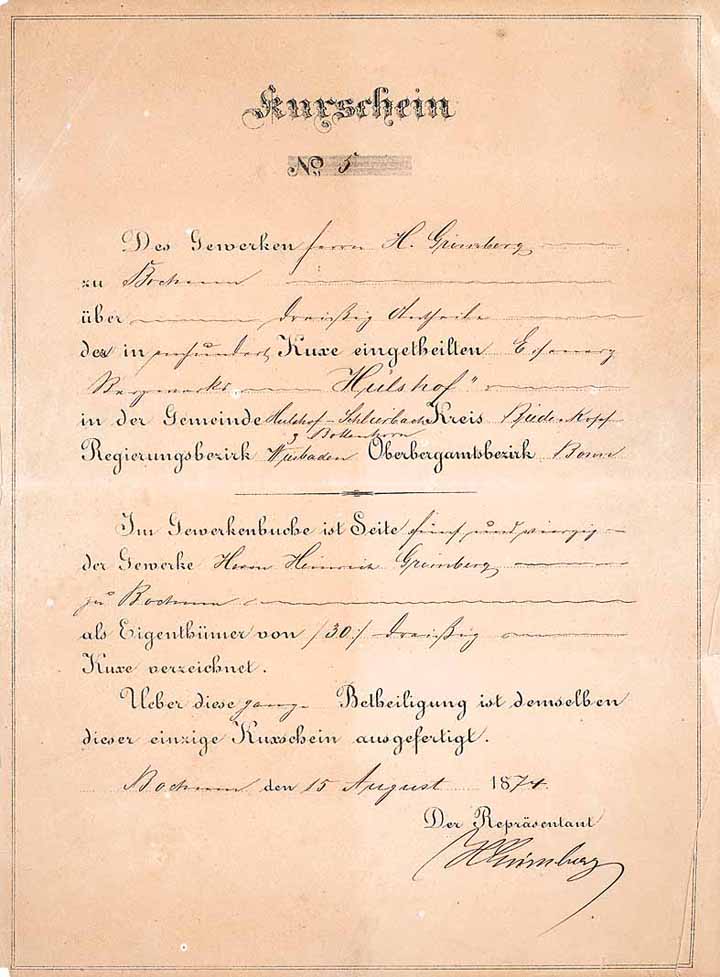 Kuxschein
No 5
Des Gewerken Herrn H. Grimberg
zu Bochum
über dreißig Antheile
des in einhundert Kuxe eingetheilten Eisenerz
Bergwerks Hülshof"
in der Gemeinde Hülshof-Schlierbach Kreis Biedenkopf
z Bottenhorn
Regierungsbezirk Wiesbaden Oberbergamtsbezirk Bonn
Im Gewerkenbuche ist Seite fünf und vierzig
der Gewerke Herrn Heinrich Grimberg
zu Bochum
als Eigenthümer von /30/ dreißig
Kuxe verzeichnet.
Ueber diese ganze Betheiligung ist demselben
dieser einzige Kuxschein ausgefertigt.
Bochum den 15 August 1874.
Der Repräsentant
HGrimberg